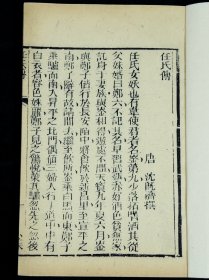 任氏傳
唐 沈既濟撰
任氏女妖也有韋使君者名崟第九少落拓嗜酒其從
父妹婿曰鄭六不記其名早習武藝亦好酒色貧無家
託身于妻族與崟相得遊處不間天寶九年夏六月崟
與鄭子偕行於長安陌中將會飲於新昌里至宣平之
南鄭子辭有故請間去繼至飲所崟乘白馬而東鄭子
乘驢而南入昇平之北門偶值三婦人行于道中中有
白衣者容色姝麗鄭子見之驚悅策其驢忽先之忽後